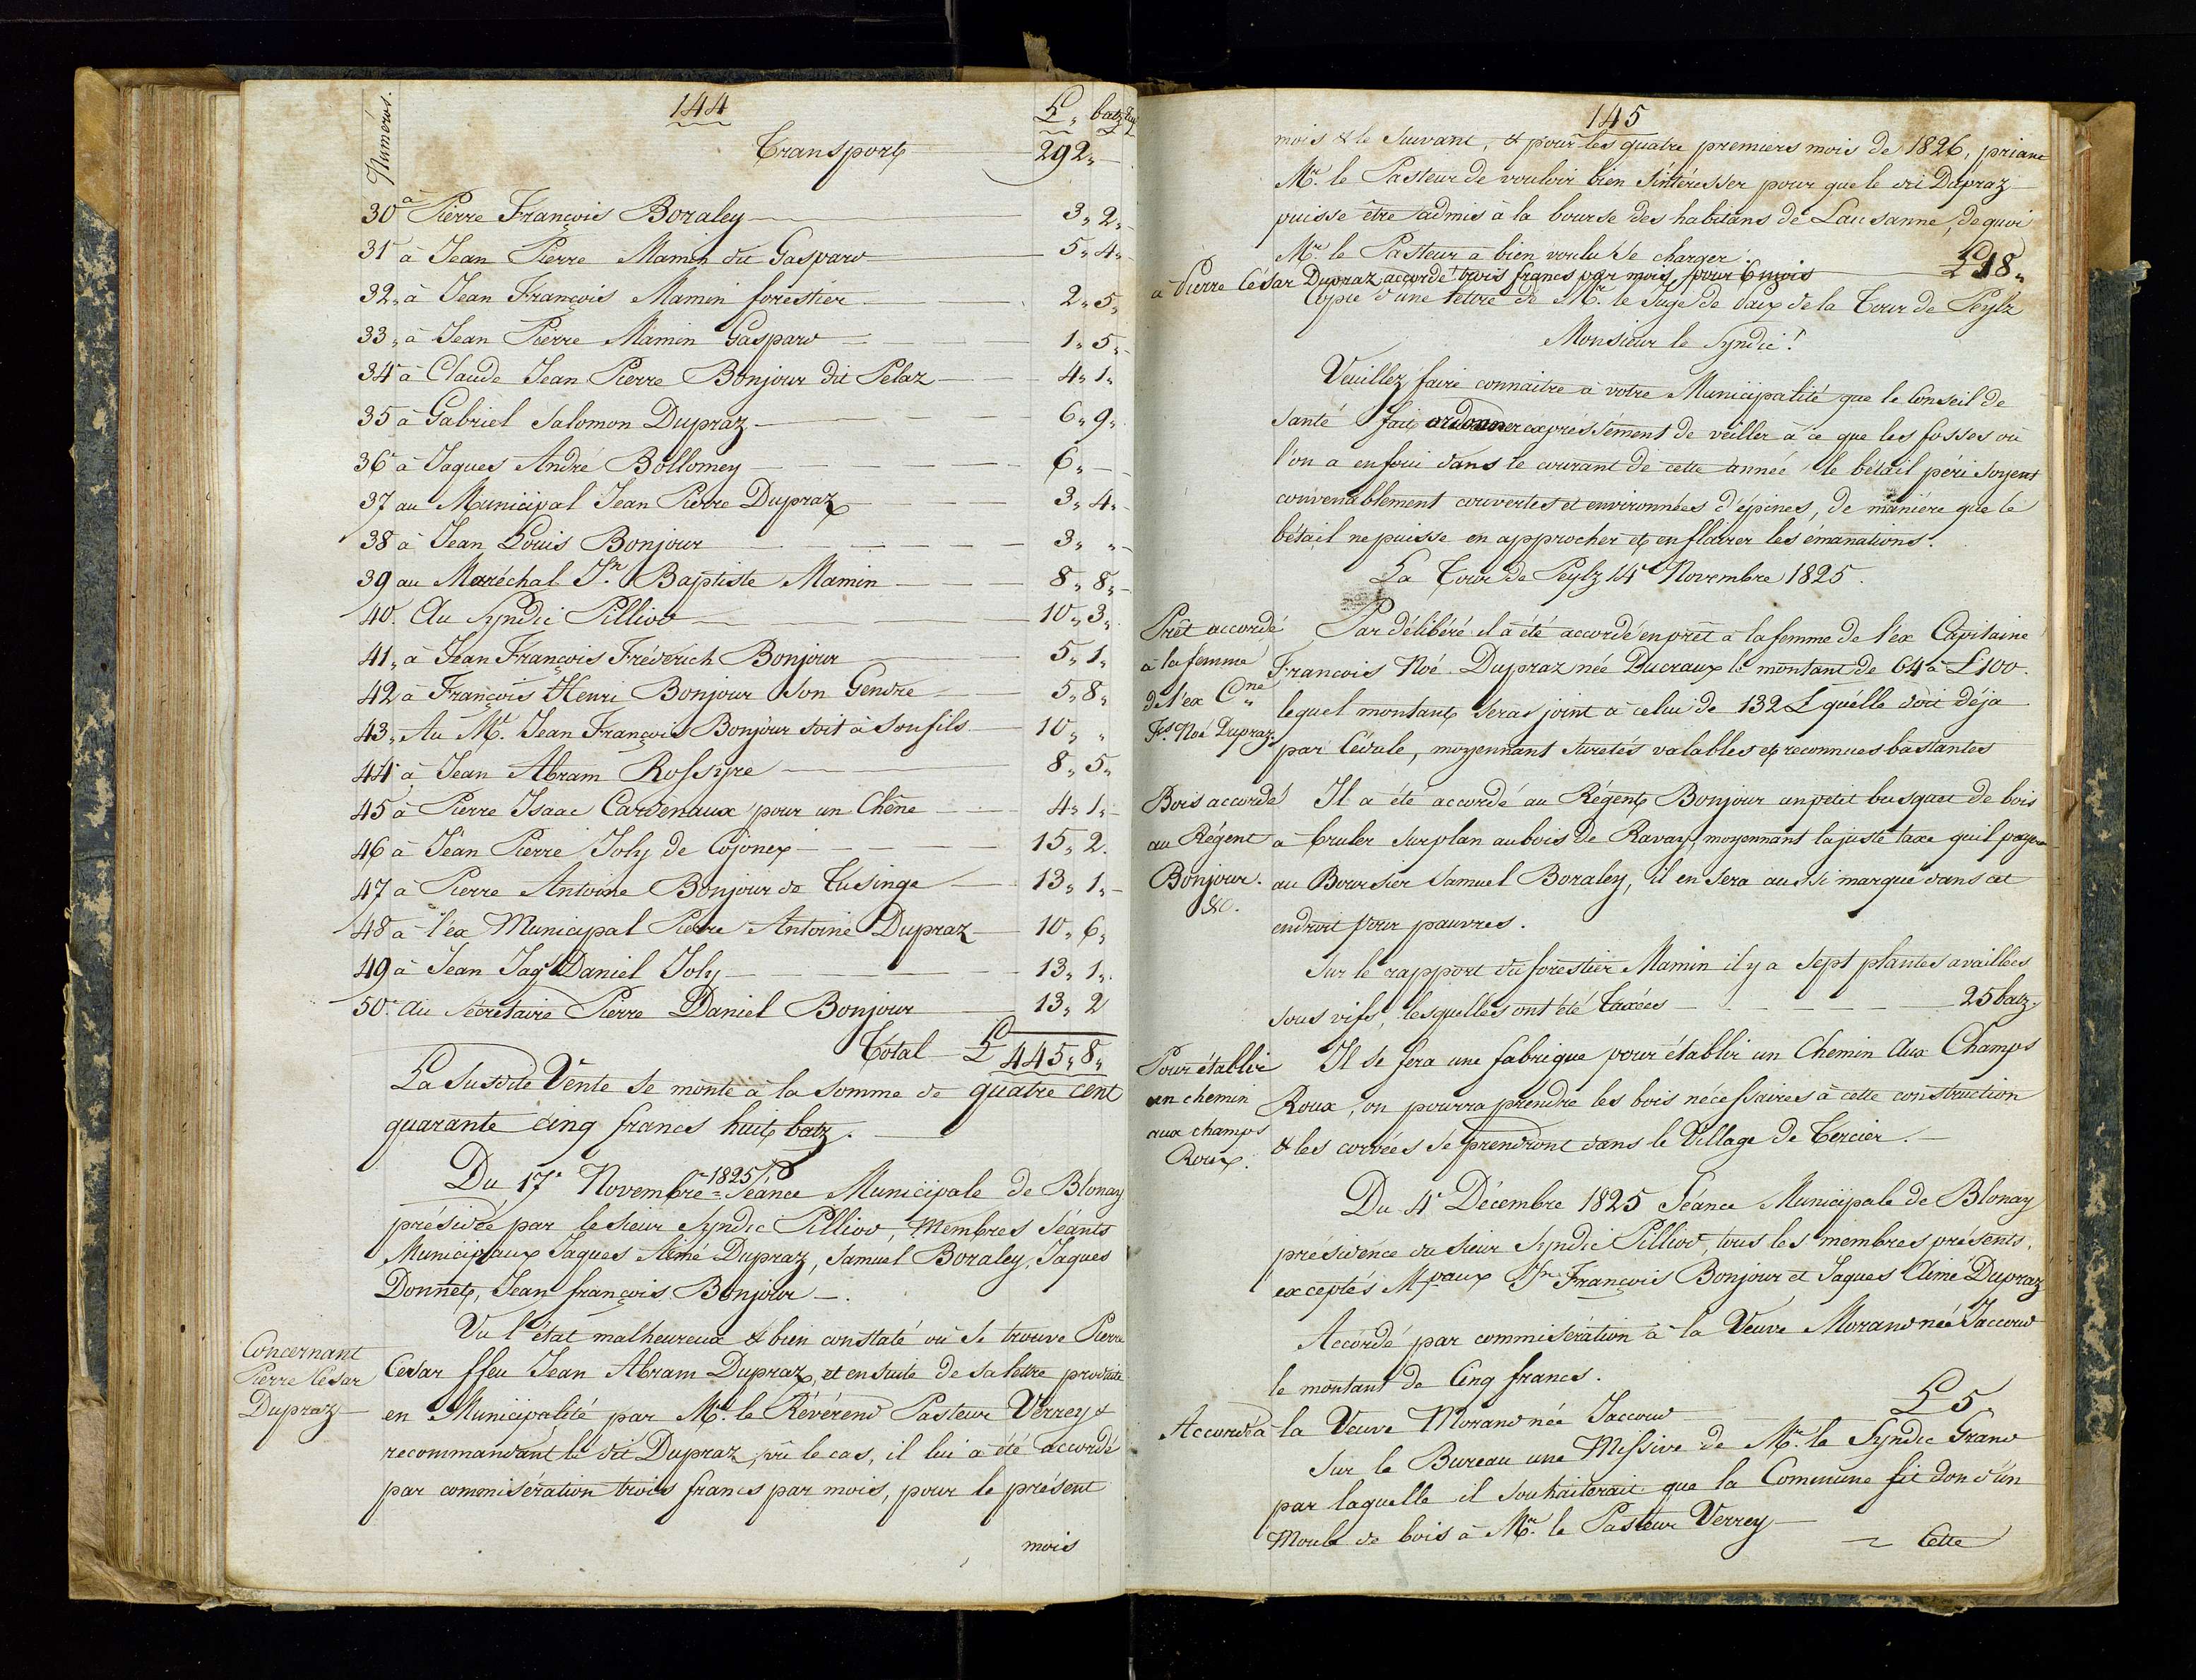 144
Numéros.
L „ batz
Transport 292„
30 à Pierre François Boraley 3„ 2„
31 à Jean Pierre Mamin dit Gaspard 5„ 4„
32„ à Jean François Mamin forestier 2„ 5„
33„ à Jean Pierre Mamin Gaspard 1„ 5„
34 à Claude Jean Pierre Bonjour dit Pelaz 4„ 1„
35 à Gabriel Salomon Dupraz 6„ 9„
36 à Jaques André Bollomey 6„ —
37 au Municipal Jean Pierre Dupraz 3„ 4„
38 à Jean Louis Bonjour 3„ „
39 au Maréchal Jn Baptiste Mamin 8„ 8„
40. Au Syndic Pilliod 10„ 3„
41„ à Jean François Fréderich Bonjour 5„ 1„
42 à François Henri Bonjour son Gendre 5„ 8„
43„ Au Ml Jean François Bonjour soit à son fils 10„ „
44 à Jean Abram Rossyre 8„ 5„
45 à Pierre Isaac Cardenaux pour un Chêne 4„ 1„
46 à Jean Pierre Joly de Cojonex 15„ 2.
47 à Pierre Antoine Bonjour de Tusinge 13„ 1„
48 à l'ex Municipal Pierre Antoine Dupraz 10„ 6„
49 à Jean Jaqs Daniel Joly 13„ 1„
50. Au Secretaire Pierre Daniel Bonjour 13„ 2
Total L 445„ 8„
La susdite Vente se monte à la somme de quatre cent
quarante cinq francs huit batz.
Du 17e Novembre 1825 = Séance Municipale de Blonay
présidée par le sieur Syndic Pilliod, Membres séants
Municipaux Jaques Aimé Dupraz, Samuel Boraley, Jaques
Donnet, Jean françois Bonjour —.
Concernant
Pierre César
Dupraz
Vu l'état malheureux & bien constaté où se trouve Pierre
César ffeu Jean Abram Dupraz, et ensuite de sa lettre produite
en Municipalité par Mr. le Révérend Pasteur Verrey &
recommandant le dit Dupraz, vû le cas, il lui a été accordé
par commisération trois francs par mois, pour le présent
mois
145
mois & le suivant, & pour les quatre premiers mois de 1826, priant
Mr. le Pasteur de vouloir bien s'intéresser pour que le dit Dupraz
puisse être admis à la bourse des habitans de Lausanne, de quoi
Mr. le Pasteur a bien voulu se charger.
à Pierre César Dupraz accordé trois francs par mois, pour 6 mois L 18„
Copie d'une lettre de Mr. le Juge de Paix de la Tour de Peylz
Monsieur le Syndic!
Veuillez faire connaitre à votre Municipalité que le Conseil de
santé fait ordonner expressément de veiller à ce que les fosses où
l'on a enfoui dans le courant de cette année le bétail péri soyent
convenablement couvertes et environnées d'épines, de manière que le
bétail ne puisse en approcher et en flairer les émanations.
La Tour de Peylz 14 Novembre 1825.
Prêt accordé
à la femme
de l'ex Cne
Fs Noé Dupraz
Par délibéré il a été accordé en prêt à la femme de l'ex Capitaine
François Noé Dupraz née Ducraux le montant de 64 à L 100.
lequel montant sera joint à celui de 132 L qu'elle doit déja
par Cédule, moyennant suretés valables et reconnues bastantes
Bois accordé
au Régent
Bonjour.
&c.
Il a été accordé au Régent Bonjour un petit busquet de bois
à bruler sur plan au bois de Ravay, moyennant la juste taxe quil payera
au Boursier Samuel Boraley, il en sera aussi marqué dans cet
endroit pour pauvres.
Sur le rapport du forestier Mamin il y a sept plantes availlées
sous vifs, lesquelles ont été taxées — 25 batz.
Pour établir
un chemin
aux champs
Roux.
Il se fera une fabrique pour établir un Chemin Aux Champs
Roux, on pourra prendre les bois nécessaires à cette construction
& les corvées se prendront dans le Village de Tercier. —
Du 4e Décembre 1825 Séance Municipale de Blonay
présidence du sieur Syndic Pilliod, tous les membres présents,
exceptés Mpaux Jn François Bonjour et Jaques Aimé Dupraz
Accordé par commisération à la Veuve Morand née Jaccoud
le montant de Cinq francs.
Accordé à la Veuve Morand née Jaccoud L 5.
Sur le Bureau une Missive de Mr. le Syndic Grand
par laquelle il souhaiterait que la Commune fit don d'un
Moule de bois à Mr. le Pasteur Verrey —
Cette